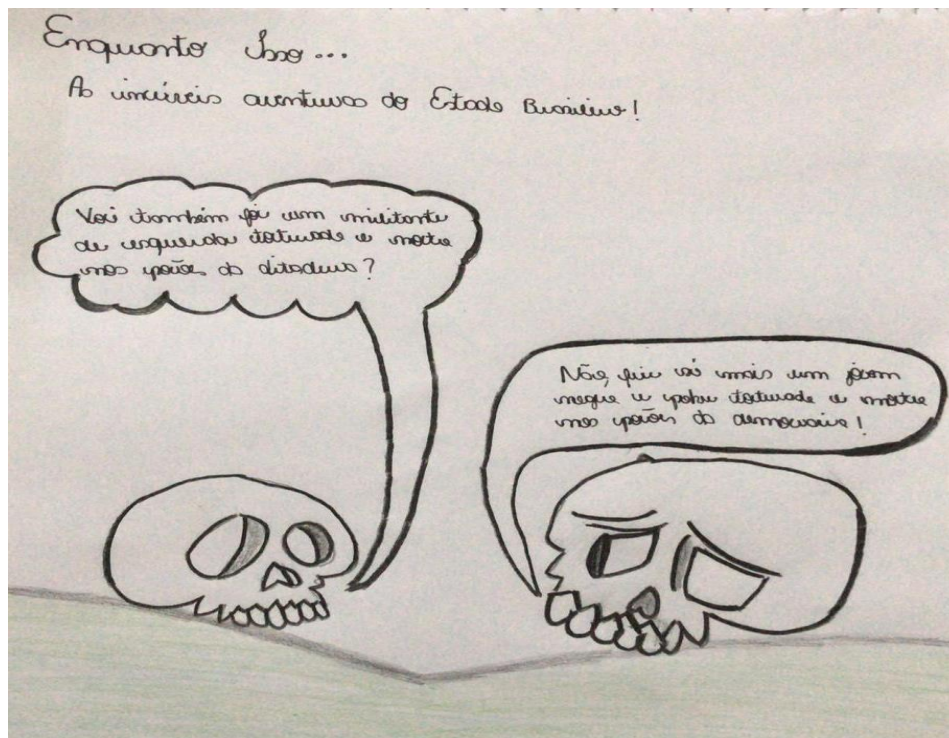 Enquanto Isso...
As incríveis aventuras do Estado Brasileiro!
Você também foi um militante
de esquerda torturado e morto
nos porões da ditadura?
Não, fui só mais um jovem
negro e pobre torturado e morto
nos porões da democracia!